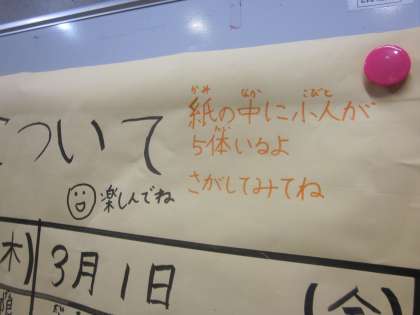 について
紙の中に小人が
5体いるよ
さがしてみてね
楽しんでね
木)
3月1日
(金)